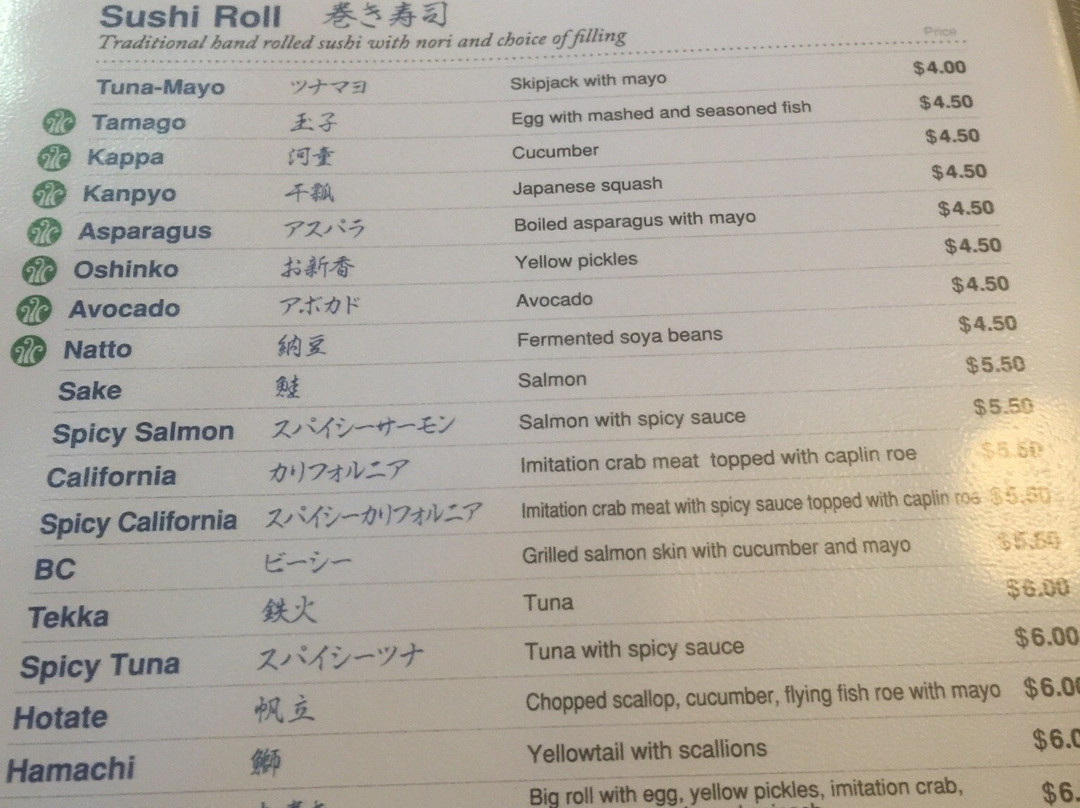 Sushi Roll 巻き寿司
Traditional hand rolled sushi with nori and choice of filling Price
Tuna-Mayo ツナマヨ Skipjack with mayo $4.00
Tamago 玉子 Egg with mashed and seasoned fish $4.50
Kappa 河童 Cucumber $4.50
Kanpyo 干瓢 Japanese squash $4.50
Asparagus アスパラ Boiled asparagus with mayo $4.50
Oshinko お新香 Yellow pickles $4.50
Avocado アボカド Avocado $4.50
Natto 納豆 Fermented soya beans $4.50
Sake 鮭 Salmon $5.50
Spicy Salmon スパイシーサーモン Salmon with spicy sauce $5.50
California カリフォルニア Imitation crab meat topped with caplin roe $5.50
Spicy California スパイシーカリフォルニア Imitation crab meat with spicy sauce topped with caplin roe $5.50
BC ビーシー Grilled salmon skin with cucumber and mayo $5.50
Tekka 鉄火 Tuna $6.00
Spicy Tuna スパイシーツナ Tuna with spicy sauce $6.00
Hotate 帆立 Chopped scallop, cucumber, flying fish roe with mayo $6.00
Hamachi 鰤 Yellowtail with scallions $6.0
Big roll with egg, yellow pickles, imitation crab, $6.